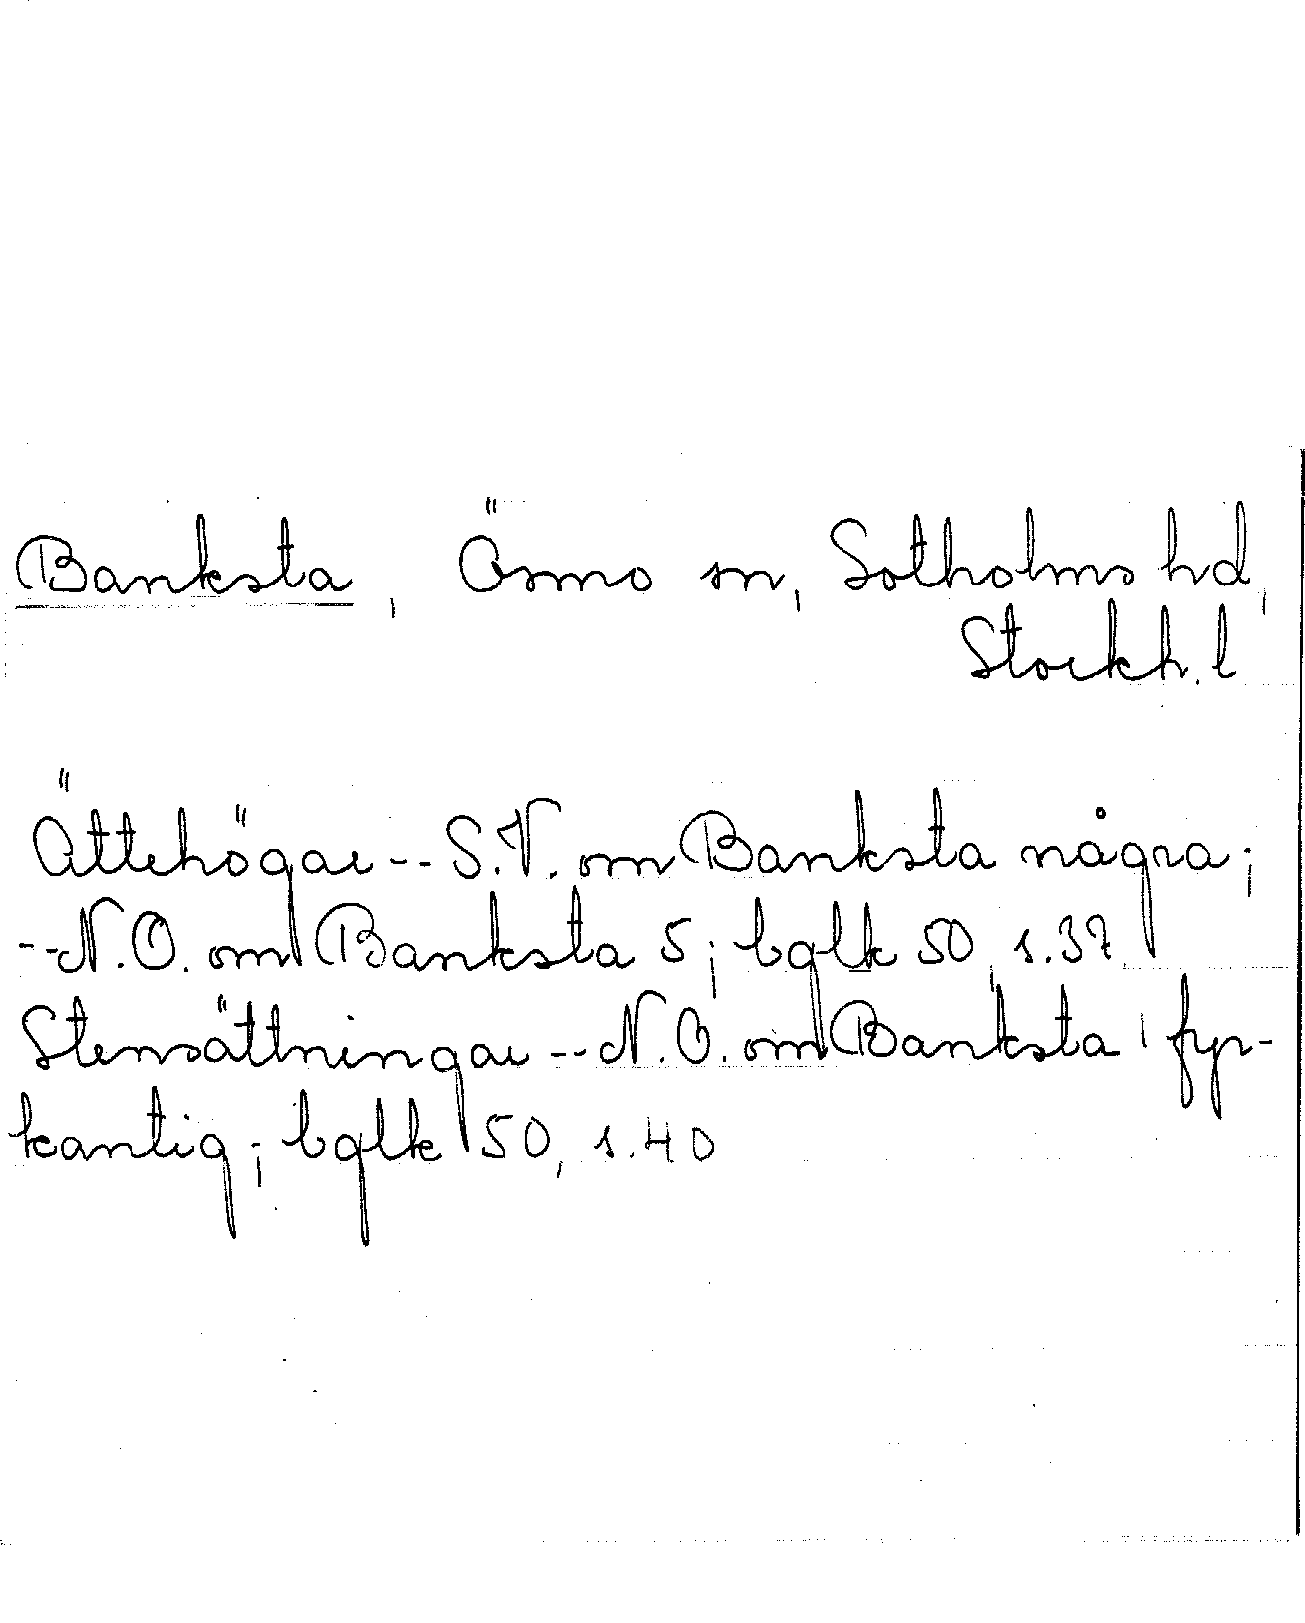 Banksta, Ösmo sn, Sotholms hd,
Stockh. l
Ättehögar -- S.V. om Banksta några;
-- N.O. om Banksta 5; bglk 50, s. 37
Stensättningar -- N.O. om Banksta 1 fyr-
kantig; bglk 50, s. 40